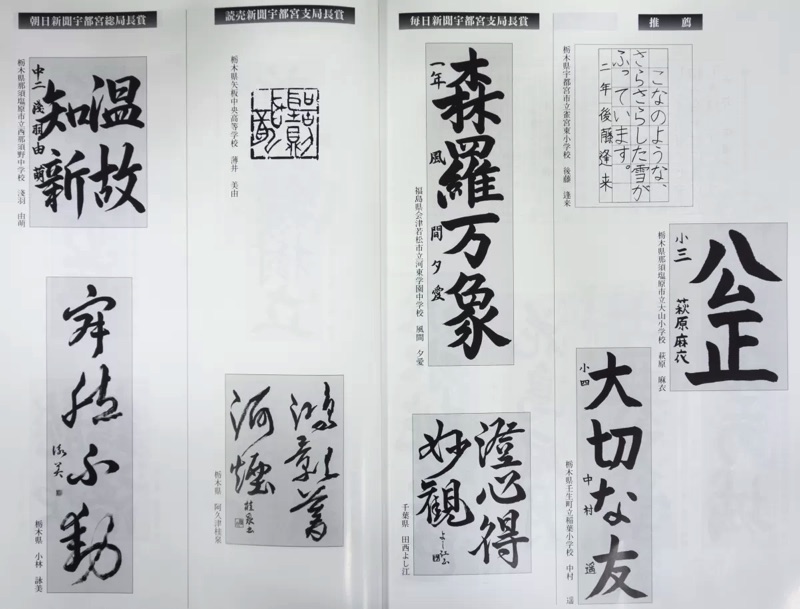 推薦
こなのような、
さらさらした雪が
ふっています。
二年 後藤逢来
栃木県宇都宮市立雀宮東小学校 後藤 逢来
公正
小三 萩原麻衣
栃木県那須塩原市立大山小学校 萩原 麻衣
大切な友
小四 中村 遥
栃木県壬生町立稲葉小学校 中村 遥
毎日新聞宇都宮支局長賞
森羅万象
一年 風間夕愛
福島県会津若松市立河東学園中学校 風間 夕愛
澄心得
妙観
千葉県 田西よし江
読売新聞宇都宮支局長賞
栃木県矢板中央高等学校 薄井 美由
鴻影著
河煙
栃木県 阿久津桂泉
朝日新聞宇都宮総局長賞
温故
知新
中二 淺羽由萌
栃木県那須塩原市立西那須野中学校 淺羽 由萌
寂然不動
栃木県 小林 詠美